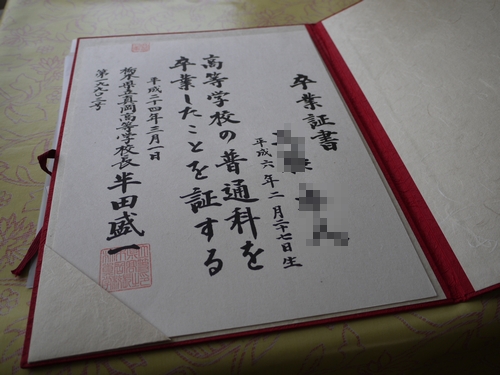 卒業証書
平成六年二月二十七日生
高等学校の普通科を
卒業したことを証する
平成二十四年三月一日
栃木県立真岡高等学校長 半田盛一